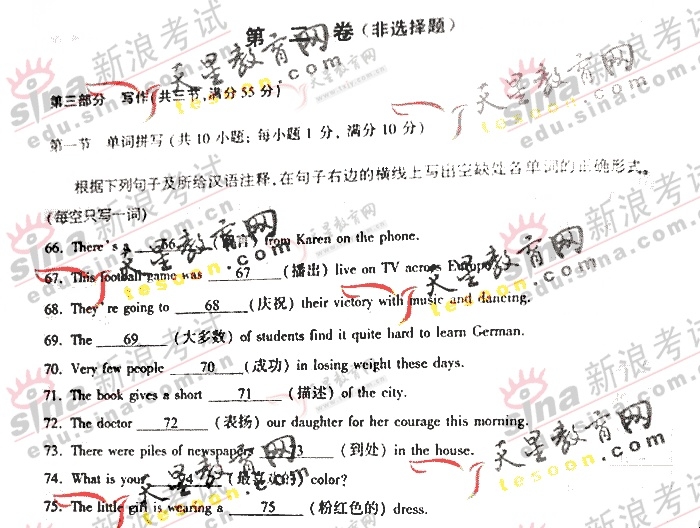 第二卷(非选择题)
第三部分 写作(共二节,满分55分)
第一节 单词拼写(共10小题;每小题1分,满分10分)
根据下列句子及所给汉语注释,在句子右边的横线上写出空缺处各单词的正确形式。
(每空只写一词)
66. There's a 66 ( 言) from Karen on the phone.
67. This football game was 67 (播出) live on TV across Europe.
68. They're going to 68 (庆祝) their victory with music and dancing.
69. The 69 (大多数) of students find it quite hard to learn German.
70. Very few people 70 (成功) in losing weight these days.
71. The book gives a short 71 (描述) of the city.
72. The doctor 72 (表扬) our daughter for her courage this morning.
73. There were piles of newspapers 73 (到处) in the house.
74. What is your 74 (最喜欢的) color?
75. The little girl is wearing a 75 (粉红色的) dress.
新浪考试
sina
edu.sina.com.cn
天星教育网
tesoon.com